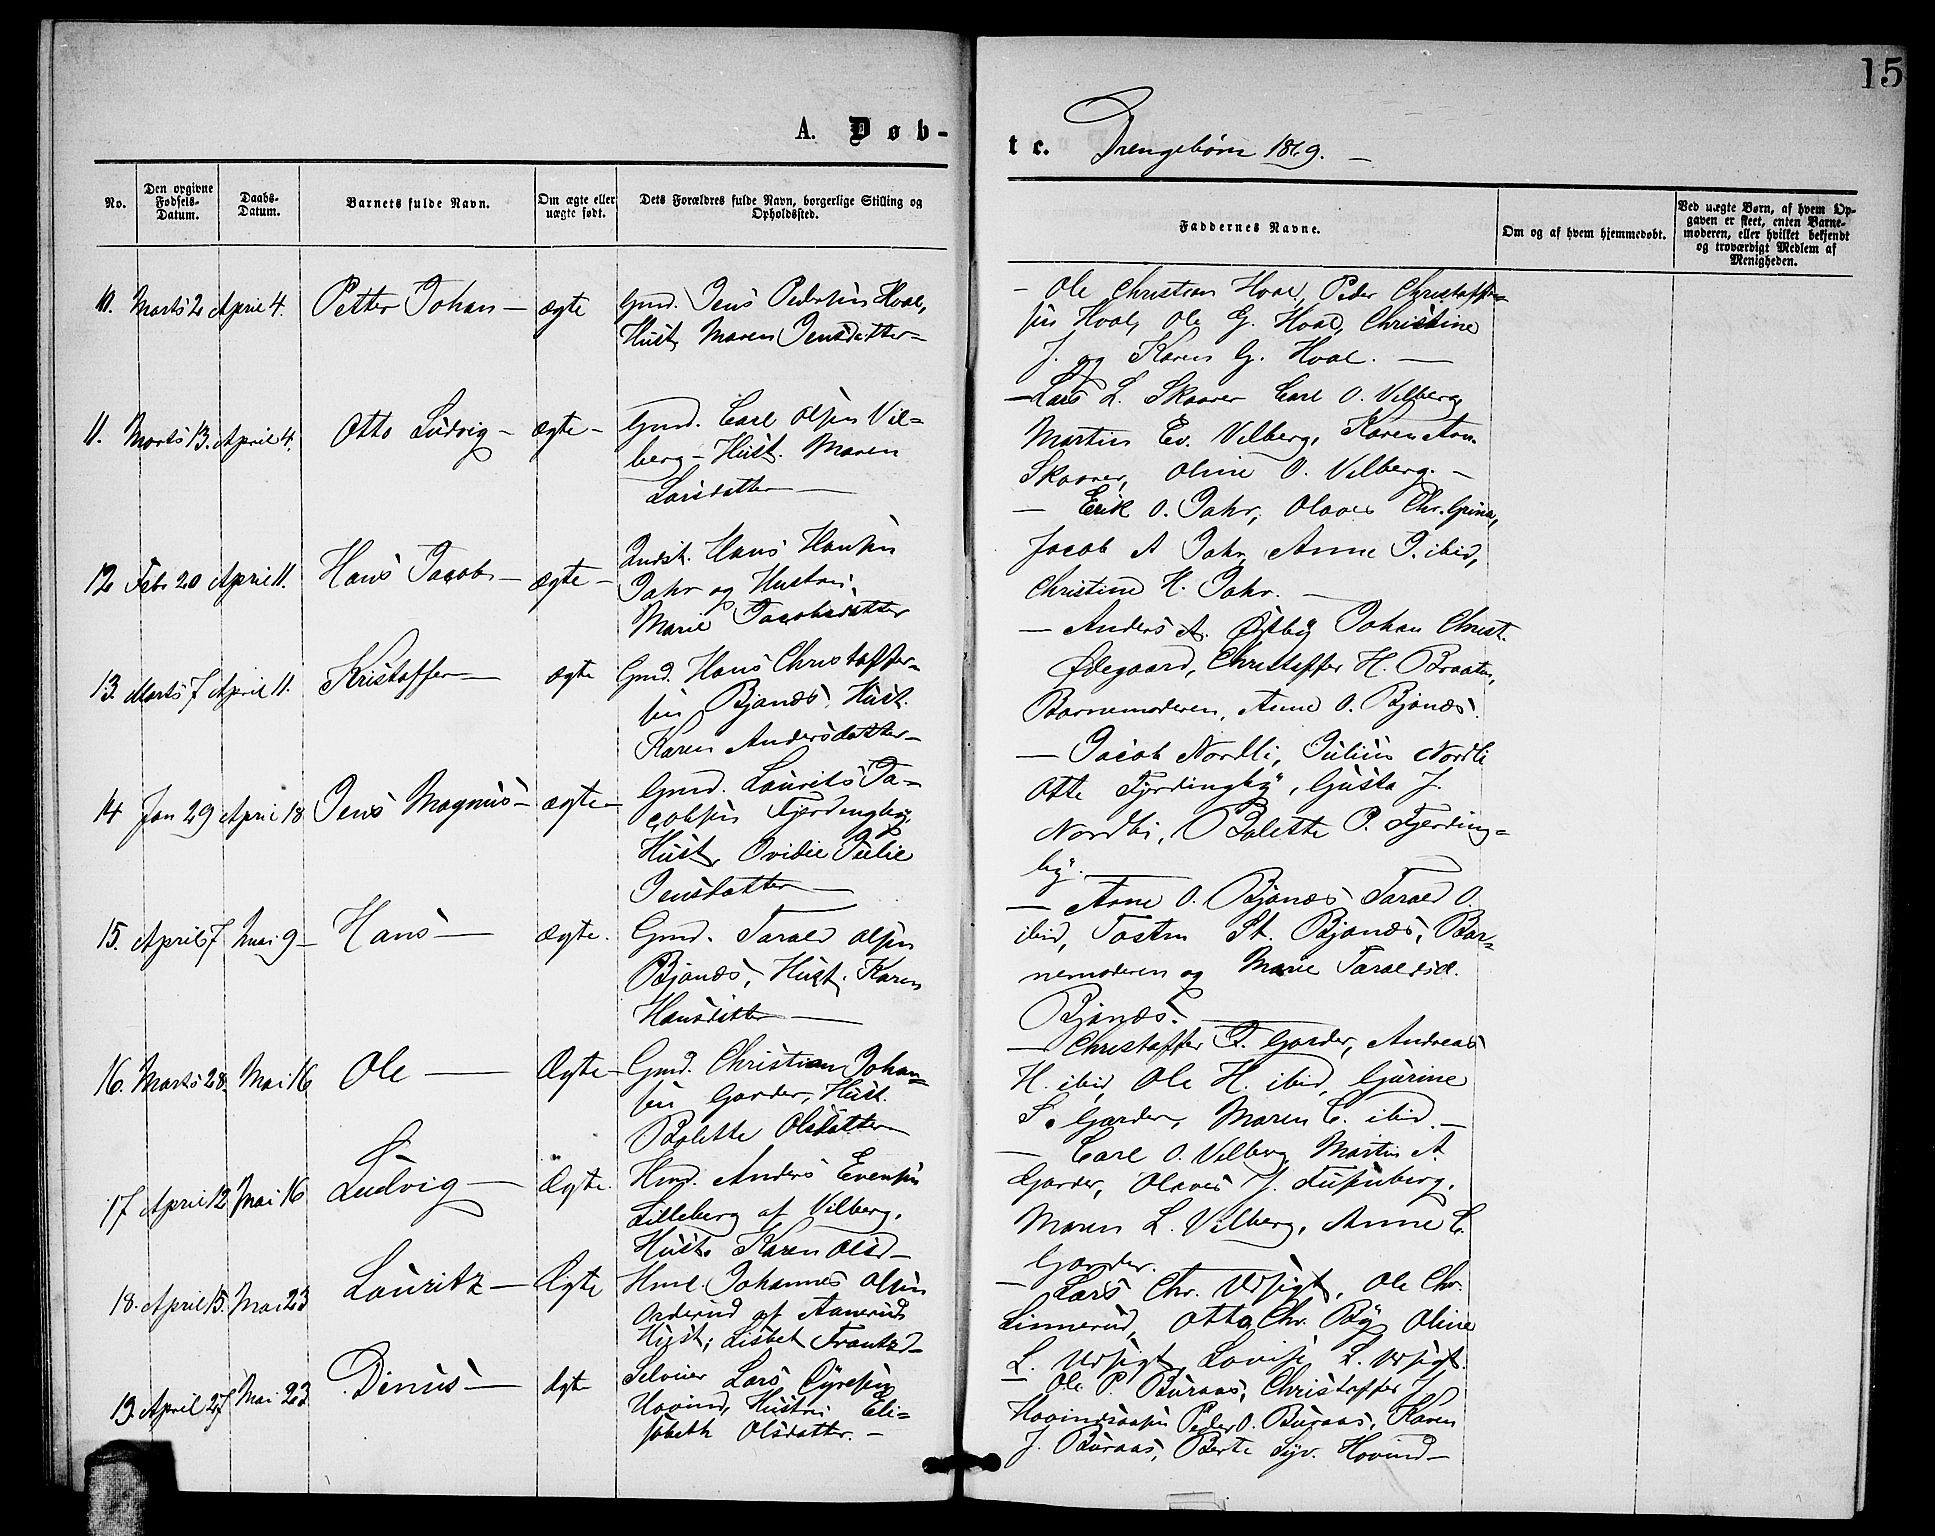 15
A. Døb-
te. Drengebørn 1869. —
No.
Den opgivne Fødsels-Datum.
Daabs-Datum.
Barnets fulde Navn.
Om ægte eller uægte født.
Dets Forældres fulde Navn, borgerlige Stilling og Opholdssted.
Faddernes Navne.
Om og af hvem hjemmedøbt.
Ved uægte Børn, af hvem Opgaven er skeet, enten Barnemoderen, eller hvilket bekjendt og troværdigt Medlem af Menigheden.
10. Marts 2 April 4. Petter Johan — ægte
Gmd. Jens Pedersen Hval,
Hust. Maren Jensdatter —
— Ole Christian Hval, Peder Christaffer-
sen Hval, Ole G. Hval, Christine
J. og Karen G. Hval. —
11. Marts 13. April 4. Otto Ludvig — ægte —
Gmd. Carl Olsen Vil-
berg — Hust. Maren
Larsdatter —
— Lars L. Skaarer Carl O. Vilberg
Martin Ev. Vilberg, Karen Am.
Skaarer, Oline O. Vilberg. —
12 Febr 20 April 11. Hans Jacob — ægte —
Indst. Hans Hansen
Jahr og Hustru
Marie Jacobsdatter
— Erik O. Jahr, Olaves Chr.
Jacob A Jahr, Anne J. ibid,
Christine H. Jahr. —
13. Marts 7 April 11. Kristoffer — ægte
Gmd. Hans Christoffer-
sen Bjanæs, Hust.
Karen Andersdatter —
— Anders A. Østby Johan Christ.
Ødegaard, Christoffer H. Braaten,
Barnemoderen, Anne O. Bjanæs.
14 Jan 29 April 18 Jens Magnus — ægte —
Gmd. Laurits Ja-
cobsen Fjerdingby,
Hust. Ovidie Julie
Jensdatter —
— Jacob Nordli, Julius Nordli
Otto Fjerdingby, Gusta J.
Nordli, Bolette P. Fjerding-
by.
15. April 7 Mai 9 — Hans — ægte.
Gmd. Tarald Olsen
Bjanæs, Hust. Karen
Hansdatter —
— Anne O. Bjanæs Tarald O.
ibid, Tosten St. Bjanæs, Bar-
nemoderen og Marie Taraldsd.
Bjanæs. —
16. Marts 28. Mai 16 Ole — Ægte —
Gmd. Christian Johan-
sen Garder, Hust.
Bolette Olsdatter —
— Christoffer J. Garder, Andreas
H. ibid, Ole H. ibid, Gurine
S. Garder, Maren C. ibid. —
17 April 12 Mai 16 Ludvig — Ægte.
Hmd. Anders Evensen
Lilleberg af Vilberg.
Hust. Karen Olsd —
— Carl O. Vilberg Martin A.
Garder, Olaves J.
Maren L. Vilberg, Anne C.
Garder.
18. April 15. Mai 23 Lauritz — Ægte
Hmd. Johannes Olsen
Orderud af Aamerud
Hust; Lisbet Frantzd —
— Lars Chr. Ursigt, Ole Chr.
Linnerud, Otto Chr. By, Oline
L. Ursigt, Lovise L. Ursigt.
19. April 27 Mai 23 Dinus — ægte
Selveier Lars Syversen
Hovind, Hustru Eli-
sabeth Olsdatter. —
— Ole P. Buraas, Christoffer J.
Peder O. Buraas, Karen
J. Buraas, Berte Syv. Hovind —